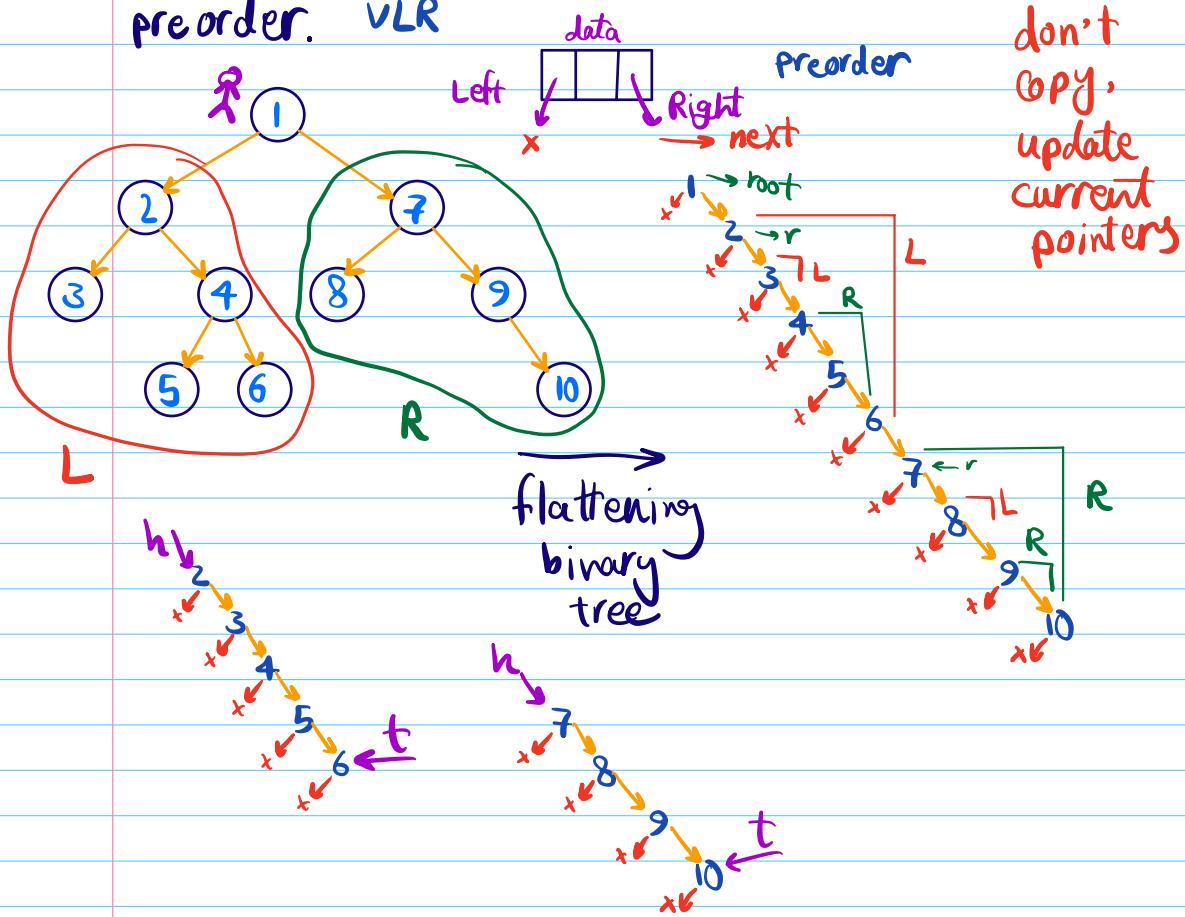 preorder. VLR
data
Left
Right
x
next
preorder
don't
copy,
update
current
pointers
1
2
7
3
4
8
9
5
6
10
L
R
flattening
binary
tree
1 → root
x
2 → r
x
3 L
x
4 R
x
5
x
6
x
L
7 ← r
x
8 L
x
9 R
x
10
x
R
h
2
x
3
x
4
x
5
x
6 t
x
h
7
x
8
x
9
x
10 t
x